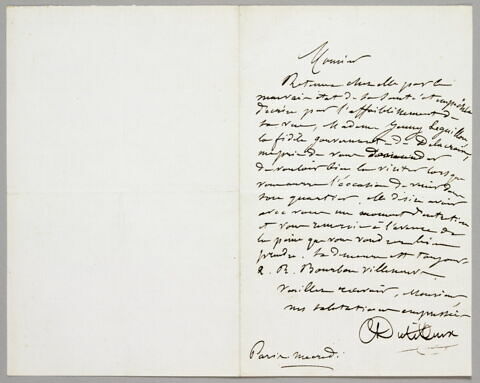 Monsieur
Retenue chez elle par le
mauvais état de sa santé et empêchée
d'écrire par l'affaiblissement de
sa vue, Madame Jenny Leguillou
la fidèle gouvernante de Delacroix,
me prie de vous demander
de vouloir bien la visiter lorsque
vous aurez l'occasion de venir dans
son quartier. Elle désire avoir
avec vous un moment d'entretien
et vous remercie à l'avance de
la peine que vous voudrez bien
prendre. Sa demeure est toujours
R. Bourbon Villeneuve
Veuillez recevoir, Monsieur
mes salutations empressées
Dutilleux
Paris mercredi.